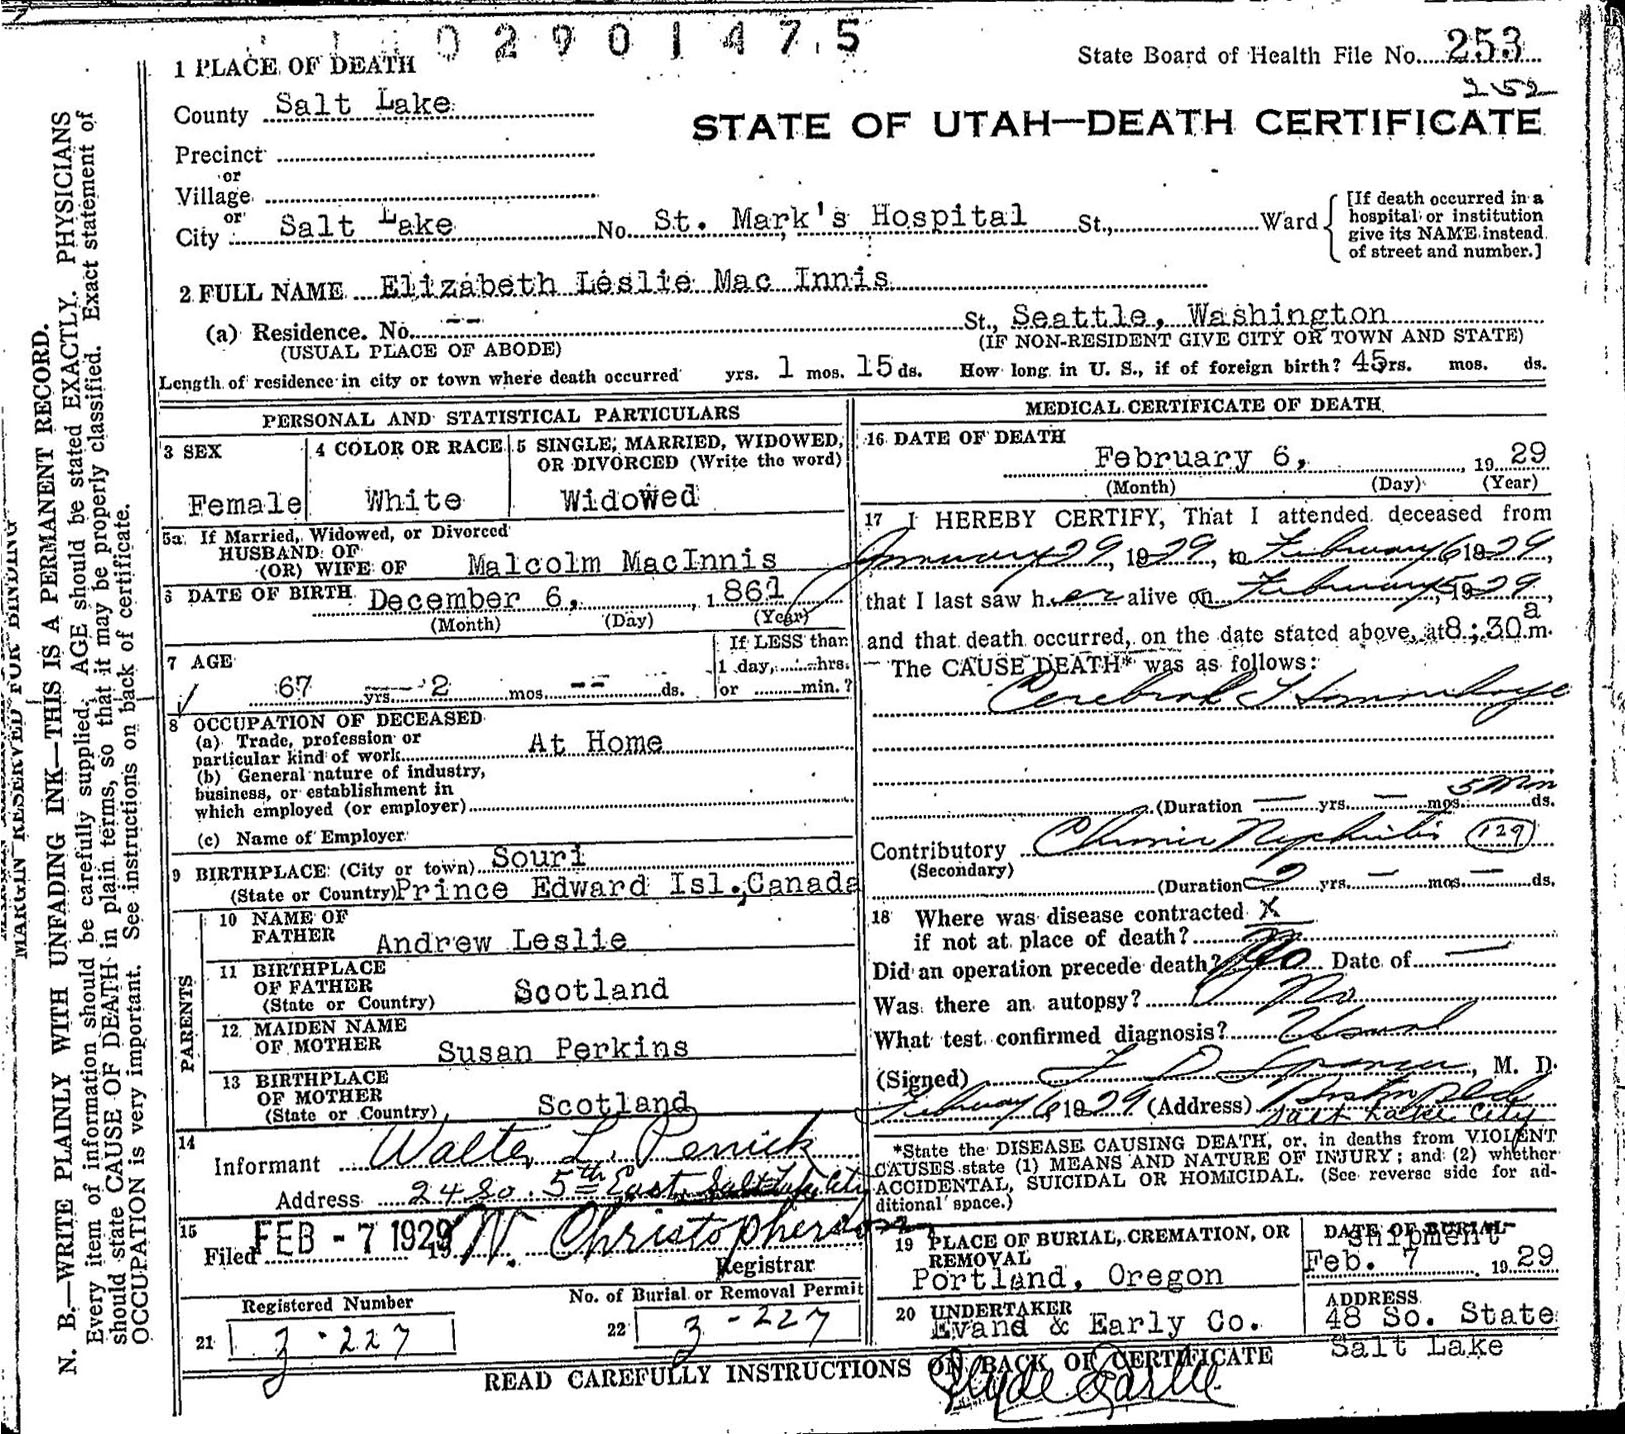 02901475
State Board of Health File No. 253
252
1 PLACE OF DEATH
County Salt Lake
STATE OF UTAH—DEATH CERTIFICATE
Precinct
or
Village
or
City Salt Lake No. St. Mark's Hospital St., Ward
[If death occurred in a
hospital or institution
give its NAME instead
of street and number.]
2 FULL NAME Elizabeth Leslie Mac Innis
(a) Residence. No. -- St., Seattle, Washington
(USUAL PLACE OF ABODE) (IF NON-RESIDENT GIVE CITY OR TOWN AND STATE)
Length of residence in city or town where death occurred yrs. 1 mos. 15 ds. How long in U. S., if of foreign birth? 45 yrs. mos. ds.
PERSONAL AND STATISTICAL PARTICULARS
3 SEX
Female
4 COLOR OR RACE
White
5 SINGLE, MARRIED, WIDOWED,
OR DIVORCED (Write the word)
Widowed
5a If Married, Widowed, or Divorced
HUSBAND OF
(OR) WIFE OF Malcolm MacInnis
6 DATE OF BIRTH December 6, 1861
(Month) (Day) (Year)
7 AGE
67 yrs. 2 mos. -- ds.
If LESS than
1 day, hrs.
or min.?
8 OCCUPATION OF DECEASED
(a) Trade, profession or
particular kind of work At Home
(b) General nature of industry,
business, or establishment in
which employed (or employer)
(c) Name of Employer
9 BIRTHPLACE (City or town) Souri
(State or Country) Prince Edward Isl., Canada
PARENTS
10 NAME OF
FATHER Andrew Leslie
11 BIRTHPLACE
OF FATHER
(State or Country) Scotland
12 MAIDEN NAME
OF MOTHER Susan Perkins
13 BIRTHPLACE
OF MOTHER
(State or Country) Scotland
14
Informant Walter L. Penick
Address 24 So. 5th East, Salt Lake City
15
Filed FEB - 7 1929 19 W. Christopherson
Registrar
Registered Number
21 3-227
No. of Burial or Removal Permit
22 3-227
MEDICAL CERTIFICATE OF DEATH
16 DATE OF DEATH
February 6, 1929
(Month) (Day) (Year)
17 I HEREBY CERTIFY, That I attended deceased from
January 29, 1929, to February 6 1929,
that I last saw her alive on February 5, 1929,
and that death occurred, on the date stated above, at 8:30 a m.
The CAUSE DEATH* was as follows:
Cerebral Hemorrhage
(Duration — yrs. — mos. 5 Min ds.
Contributory Chronic Nephritis 129
(Secondary)
(Duration 2 yrs. — mos. — ds.
18 Where was disease contracted X
if not at place of death?
Did an operation precede death? No Date of —
Was there an autopsy? No
What test confirmed diagnosis? Usual
(Signed) F D Spencer, M. D.
February 6 1929 (Address) Boston Bldg
Salt Lake City
*State the DISEASE CAUSING DEATH, or, in deaths from VIOLENT
CAUSES state (1) MEANS AND NATURE OF INJURY; and (2) whether
ACCIDENTAL, SUICIDAL OR HOMICIDAL. (See reverse side for ad-
ditional space.)
19 PLACE OF BURIAL, CREMATION, OR
REMOVAL
Portland, Oregon
DATE OF BURIAL
Shipment
Feb. 7 1929
20 UNDERTAKER
Evand & Early Co.
ADDRESS
48 So. State
Salt Lake
READ CAREFULLY INSTRUCTIONS ON BACK OF CERTIFICATE
MARGIN RESERVED FOR BINDING
N. B.—WRITE PLAINLY WITH UNFADING INK—THIS IS A PERMANENT RECORD.
Every item of information should be carefully supplied. AGE should be stated EXACTLY. PHYSICIANS
should state CAUSE OF DEATH in plain terms, so that it may be properly classified. Exact statement of
OCCUPATION is very important. See instructions on back of certificate.